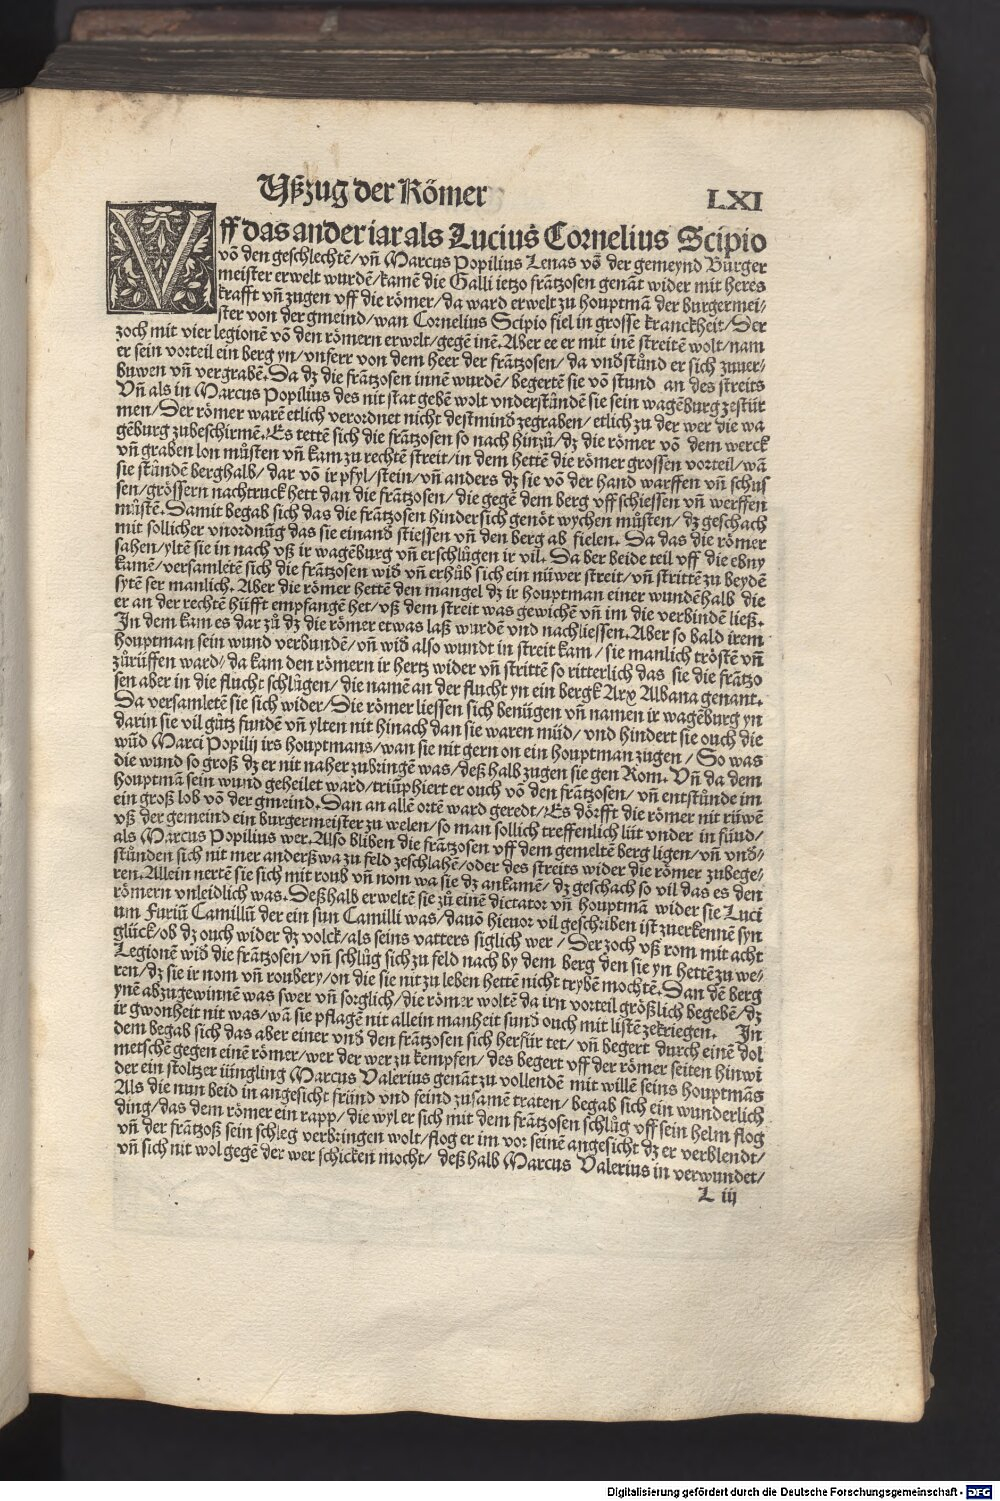 Vßzug der Römer
LXI
Vff das ander iar als Lucius Cornelius Scipio
võ den geschlechtẽ/vñ Marcus Popilius Lenas võ der gemeynd Burger
meister erwelt wurdẽ/kamẽ die Galli ietzo frãtzosen genãt wider mit heres
krafft vñ zugen vff die römer/da ward erwelt zu houptmã der burgermei⸗
ster von der gmeind/wan Cornelius Scipio fiel in grosse kranckheit/Der
zoch mit vier legionẽ võ den römern erwelt/gegẽ inẽ. Aber ee er mit inẽ streitẽ wolt/nam
er sein vorteil ein berg yn/vnferr von dem heer der frãtzosen/da vndstůnd er sich zuuer⸗
buwen vñ vergrabẽ. Da dz die frãtzosen innẽ wurdẽ/begertẽ sie võ stund an des streits
Vñ als in Marcus Popilius des nit stat gebẽ wolt vnderstůndẽ sie sein wagẽburg zestür
men/Der römer warẽ etlich verordnet nicht destmind zegraben/etlich zu der wer die wa
gẽburg zubeschirmẽ. Es tettẽ sich die frãtzosen so nach hinzů/dz die römer võ dem werck
vñ graben lon můsten vñ kam zu rechtẽ streit/in dem hettẽ die römer grossen vorteil/wã
sie stůndẽ berghalb/dar võ ir pfyl/stein/vñ anders dz sie võ der hand warffen vñ schus
sen/grössern nachtruck hett dan die frãtzosen/die gegẽ dem berg vff schiessen vñ werffen
můstẽ. Damit begab sich das die frãtzosen hindersich genöt wychen můsten/dz geschach
mit sollicher vnordnũg das sie einand stiessen vñ den berg ab fielen. Da das die römer
sahen/yltẽ sie in nach vß ir wagẽburg vñ erschlůgen ir vil. Da ber beide teil vff die ebny
kamẽ/versamletẽ sich die frãtzosen wid vñ erhůb sich ein nüwer streit/vñ strittẽ zu beydẽ
sytẽ ser manlich. Aber die römer hettẽ den mangel dz ir houptman einer wundẽ halb die
er an der rechtẽ hüfft empfangẽ het/vß dem streit was gewichẽ vñ im die verbindẽ ließ.
In dem kam es dar zů dz die römer etwas laß wurdẽ vnd nachliessen. Aber so bald irem
houptman sein wund verbundẽ/vñ wid also wundt in streit kam/sie manlich tröstẽ vñ
zůrüffen ward/da kam den römern ir hertz wider vñ strittẽ so ritterlich das sie die frãtzo
sen aber in die flucht schlůgen/die namẽ an der flucht yn ein bergk Arx Albana genant.
Da versamletẽ sie sich wider/Die römer liessen sich benügen vñ namen ir wagẽburg yn
darin sie vil gůtz fundẽ vñ ylten nit hinach dan sie waren müd/vnd hindert sie ouch die
wũd Marci Popilij irs houptmans/wan sie nit gern on ein houptman zugen/So was
die wund so groß dz er nit naher zubringẽ was/deßhalb zugen sie gen Rom. Vñ da dem
houptmã sein wund geheilet ward/triũphiert er ouch võ den frãtzosen/vñ entstůnde im
ein groß lob võ der gmeind. Dan an allẽ ortẽ ward geredt/Es dörfft die römer nit rüwẽ
vß der gemeind ein burgermeister zu welen/so man sollich treffenlich lüt vnder in fũnd/
als Marcus Popilius wer. Also bliben die frãtzosen vff dem gemeltẽ berg ligen/vñ vnd⸗
stůnden sich nit mer anderßwa zu feld zeschlahẽ/oder des streits wider die römer zubege⸗
ren. Allein nertẽ sie sich mit roub vñ nom wa sie dz ankamẽ/dz geschach so vil das es den
römern vnleidlich was. Deßhalb erweltẽ sie zů einẽ dictator vñ houptmã wider sie Luci
um Furiũ Camillũ der ein sun Camilli was/dauõ hieuor vil geschriben ist zuerkennẽ syn
glück/ob dz ouch wider dz volck/als seins vatters siglich wer/Der zoch vß rom mit acht
Legionẽ wid die frãtzosen/vñ schlůg sich zu feld nach by dem berg den sie yn hettẽ zu we⸗
ren/dz sie ir nom vñ roubery/on die sie nit zu leben hettẽ nicht trybẽ mochtẽ. Dan dẽ berg
ynẽ abzugewinnẽ was swer vñ sorglich/die römer woltẽ da irn vorteil größlich begebẽ/dz
ir gwonheit nit was/wã sie pflagẽ nit allein manheit sund ouch mit listẽ zekriegen. In
dem begab sich das aber einer vnd den frãtzosen sich herfür tet/vñ begert durch einẽ dol
metschẽ gegen einẽ römer/wer der wer zu kempfen/des begert vff der römer seiten hinwi
der ein stoltzer iüngling Marcus Valerius genãt zu vollendẽ mit willẽ seins houptmãs
Als die nun beid in angesicht fründ vnd feind zusamẽ traten/begab sich ein wunderlich
ding/das dem römer ein rapp/die wyl er sich mit dem frãtzosen schlůg vff sein helm flog
vñ der frãtzoß sein schleg verbringen wolt/flog er im vor seinẽ angesicht dz er verblendt/
vñ sich nit wol gegẽ der wer schicken mocht/deßhalb Marcus Valerius in verwundet/
L iij
Digitalisierung gefördert durch die Deutsche Forschungsgemeinschaft - DFG